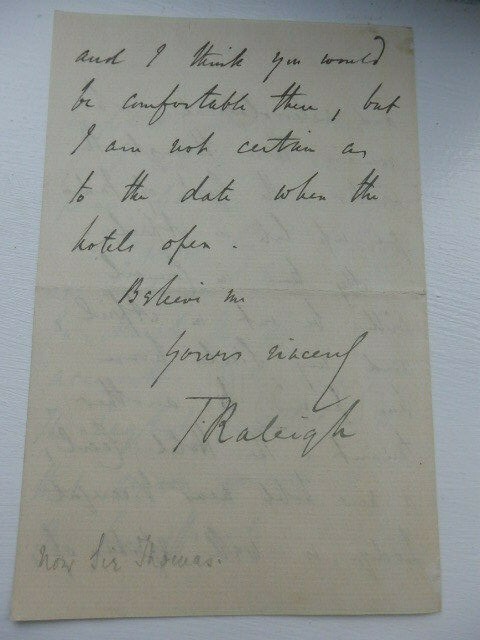 and I think you would
be comfortable there, but
I am not certain as
to the date when the
hotels open.
Believe me
Yours sincerely
T. Raleigh
Now Sir Thomas.